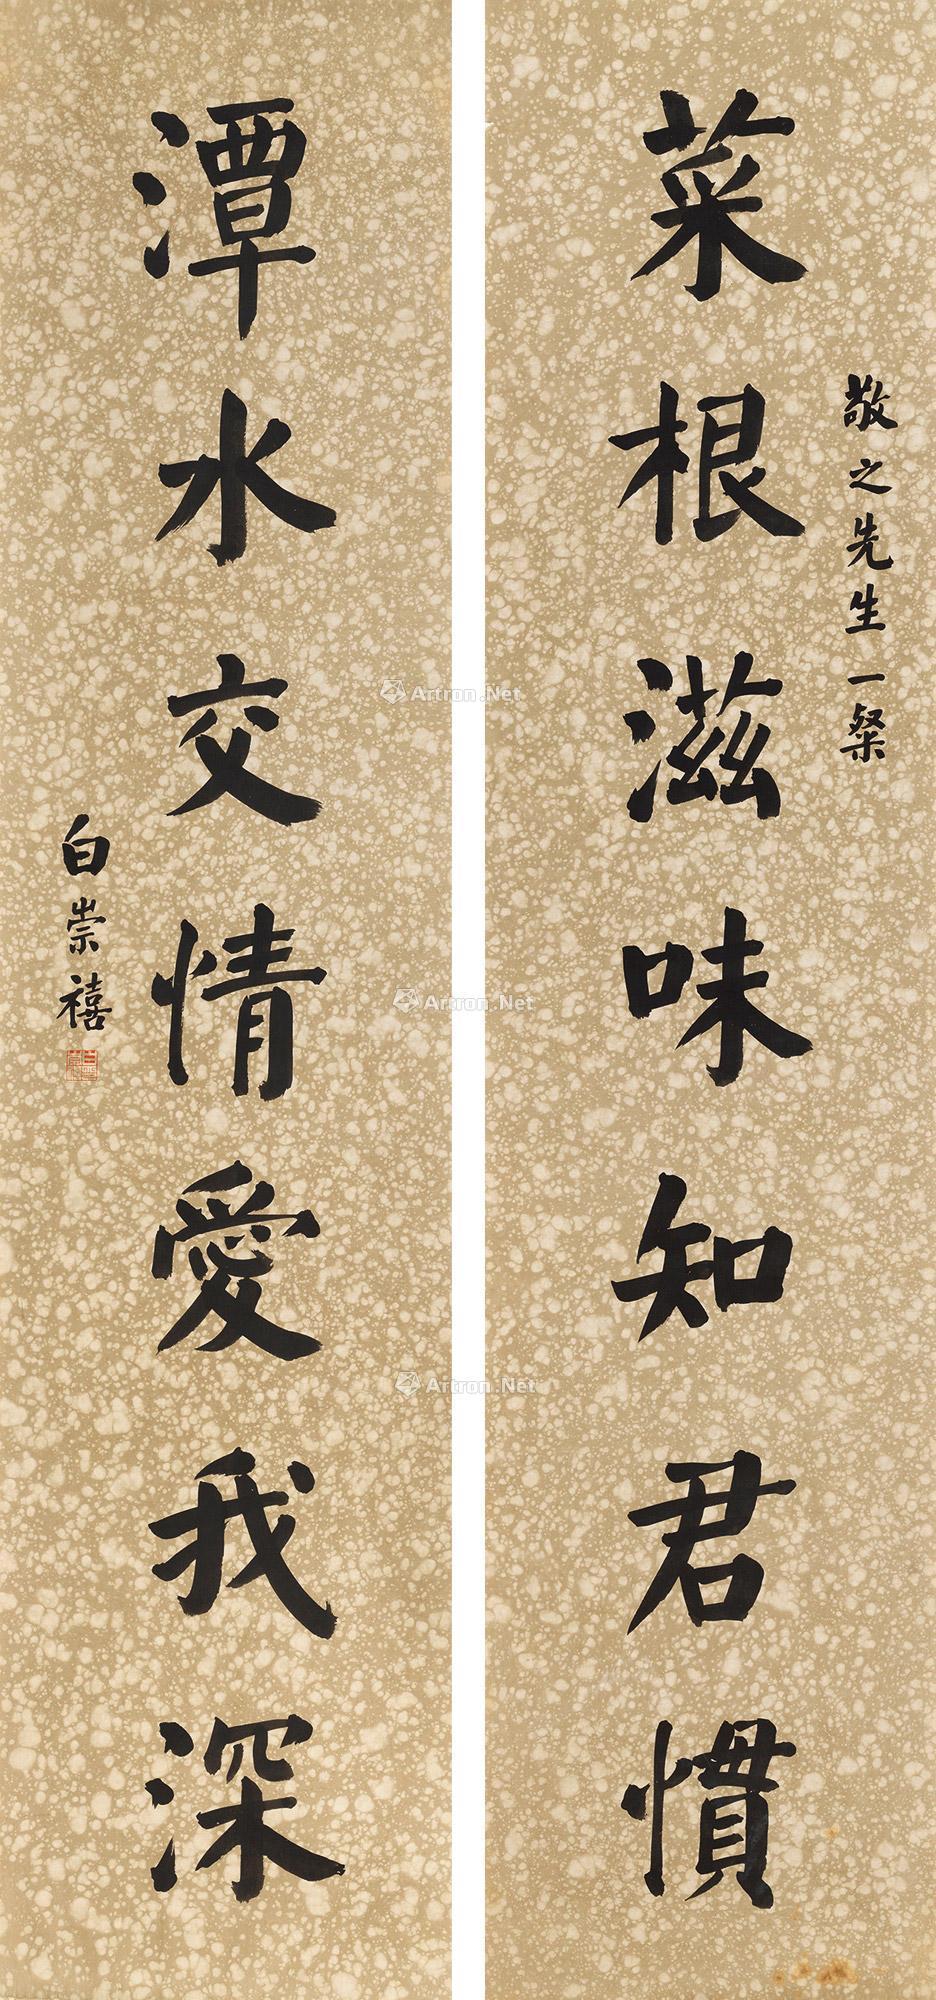 敬之先生一粲
菜根滋味知君慣
潭水交情愛我深
白崇禧
Artron.Net
Artron.Net
Artron.Net